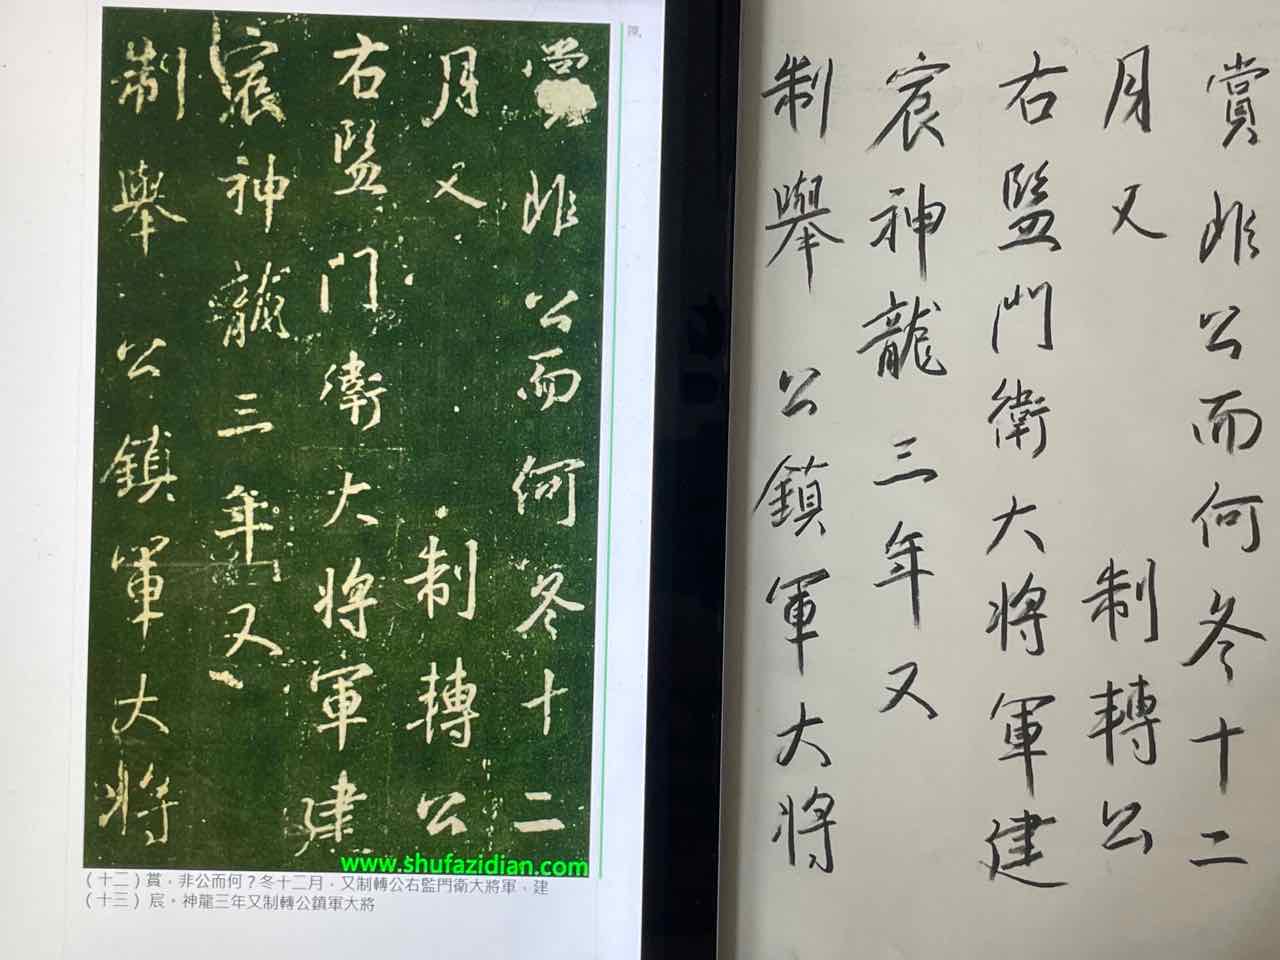 賞非公而何冬十二
月又 制轉公
右監門衛大將軍建
宸神龍三年又
制舉公鎮軍大將
www.shufazidian.com
（十二）賞，非公而何？冬十二月，又制轉公右監門衛大將軍，建
（十三）宸。神龍三年又制轉公鎮軍大將
賞非公而何冬十二
月又 制轉公
右監門衛大將軍建
宸神龍三年又
制舉公鎮軍大將